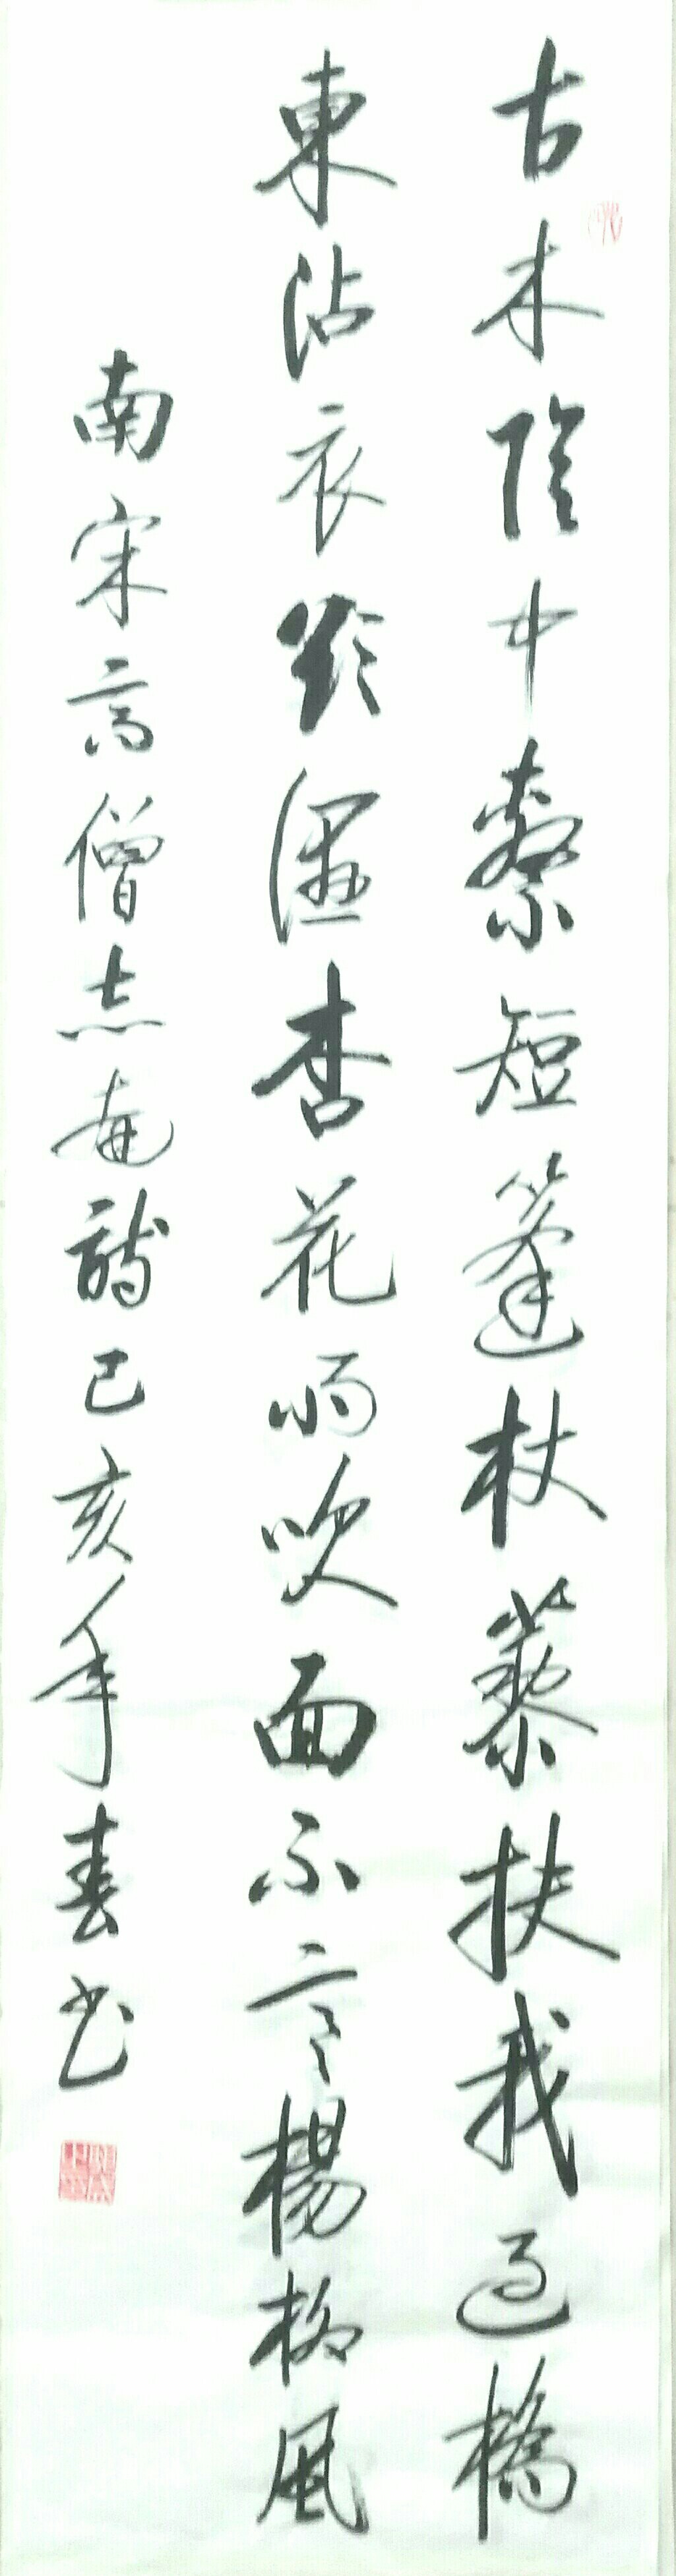 古木陰中繫短篷杖藜扶我過橋
東沾衣欲濕杏花雨吹面不寒楊柳風
南宋高僧志南詩己亥年春書